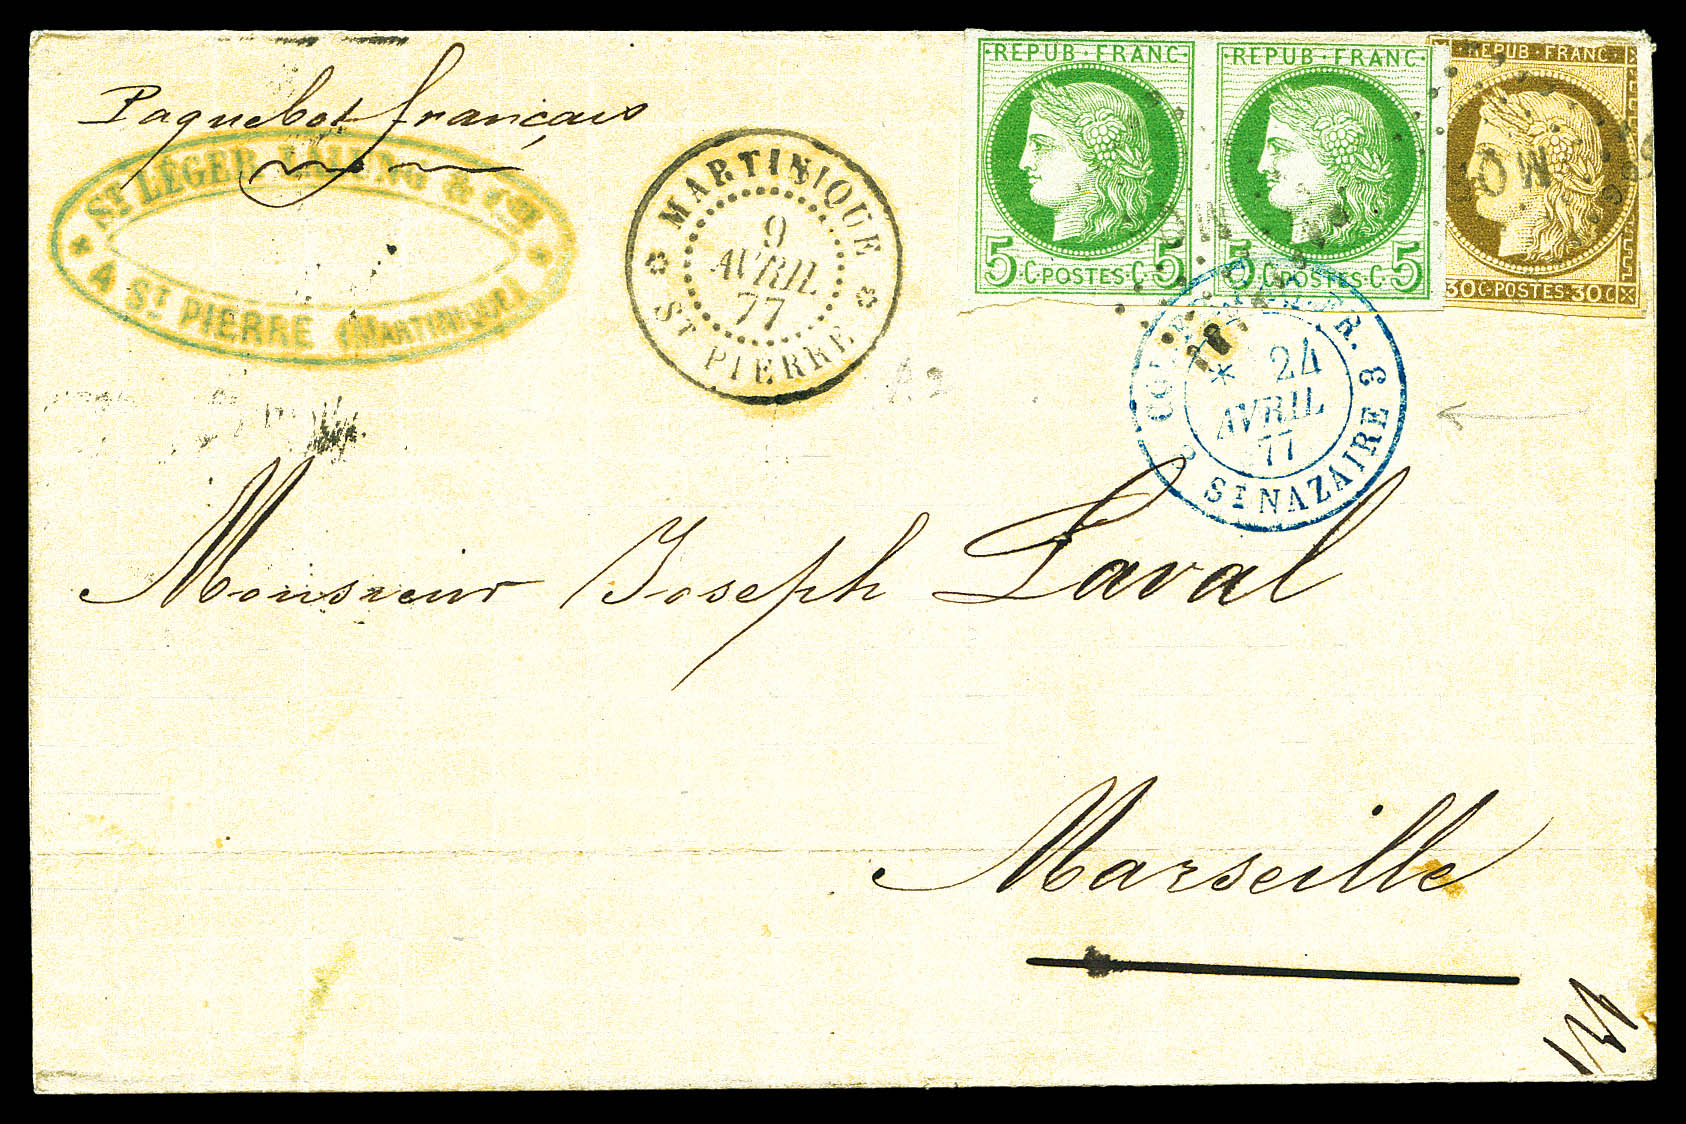 Paquebot français
ST LÉGER & CIE
A ST PIERRE (MARTINIQUE)
MARTINIQUE
9
AVRIL
77
ST PIERRE
REPUB·FRANC
5·C·POSTES·C·5
REPUB·FRANC
5·C·POSTES·C·5
REPUB·FRANC
30C·POSTES·30C
MQE
24
AVRIL
77
2 ST NAZAIRE 3
Monsieur Joseph Laval
Marseille